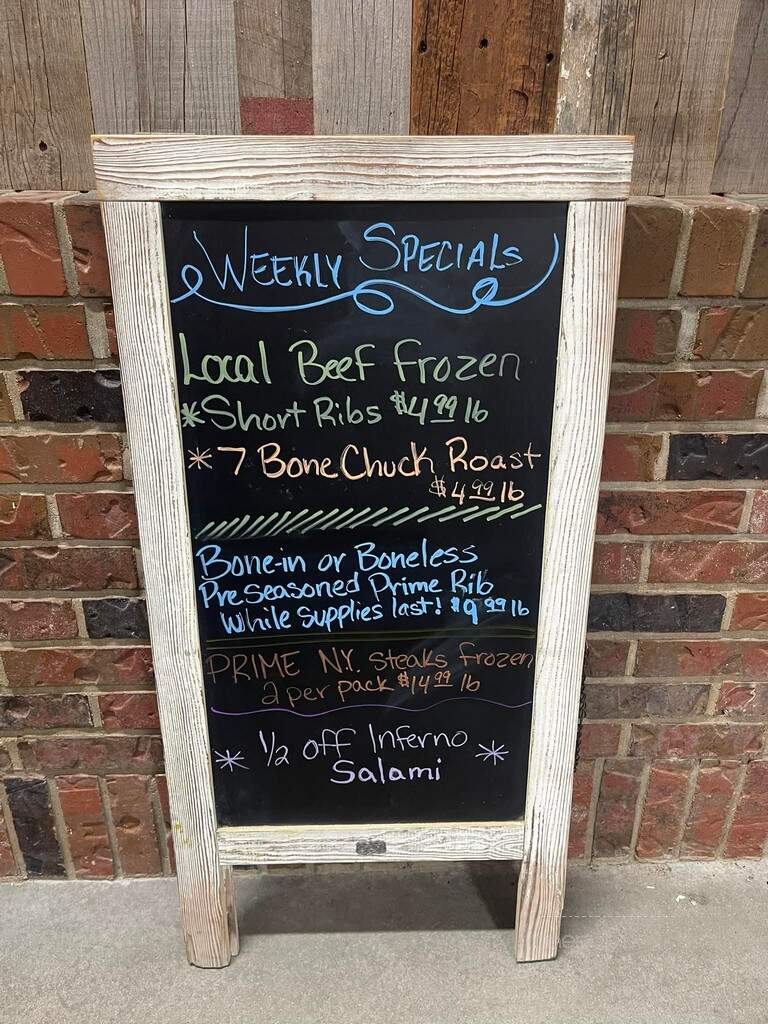 WEEKLY SPECIALS
Local Beef frozen
*Short Ribs $4.99 lb
*7 Bone Chuck Roast
$4.99 lb
Bone-in or Boneless
Preseasoned Prime Rib
While supplies last! $9.99 lb
PRIME NY. steaks frozen
2 per pack $14.99 lb
* 1/2 off Inferno *
Salami